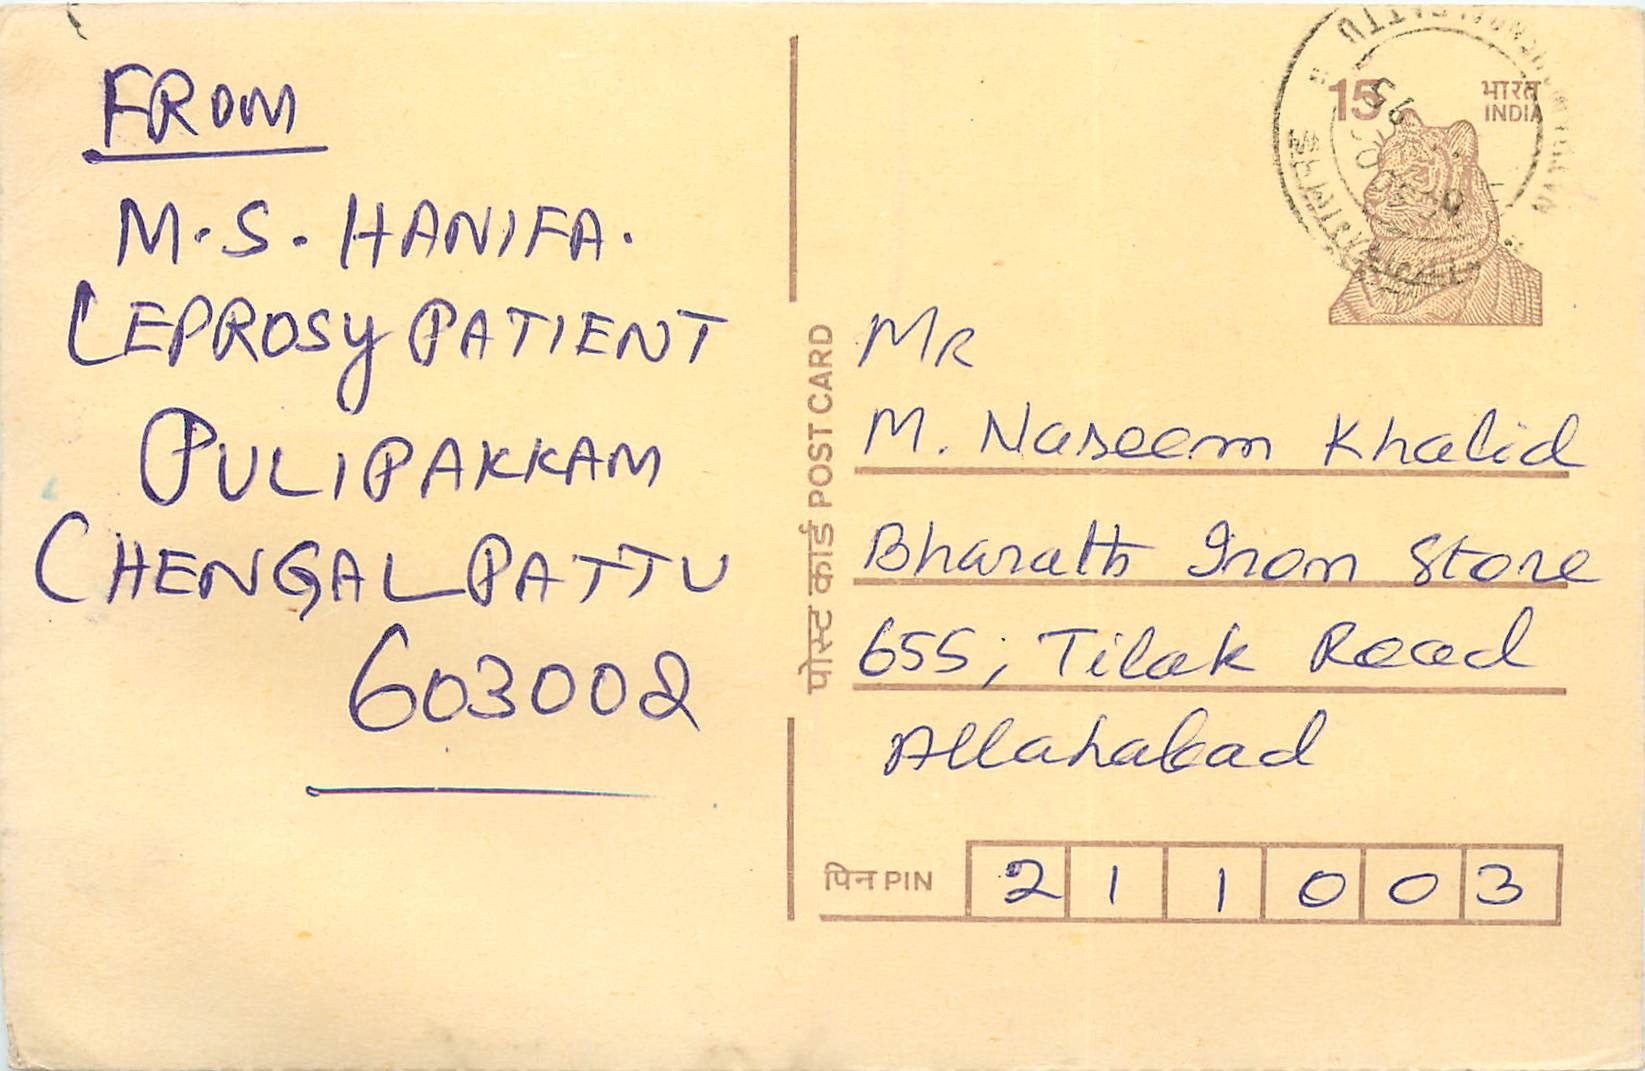 FROM
M.S. HANIFA.
LEPROSY PATIENT
PULIPAKKAM
CHENGALPATTU
603002
15
भारत
INDIA
पोस्ट कार्ड POST CARD
MR
M. Naseem Khalid
Bharath Iron Store
655, Tilak Road
Allahabad
पिन PIN 211003